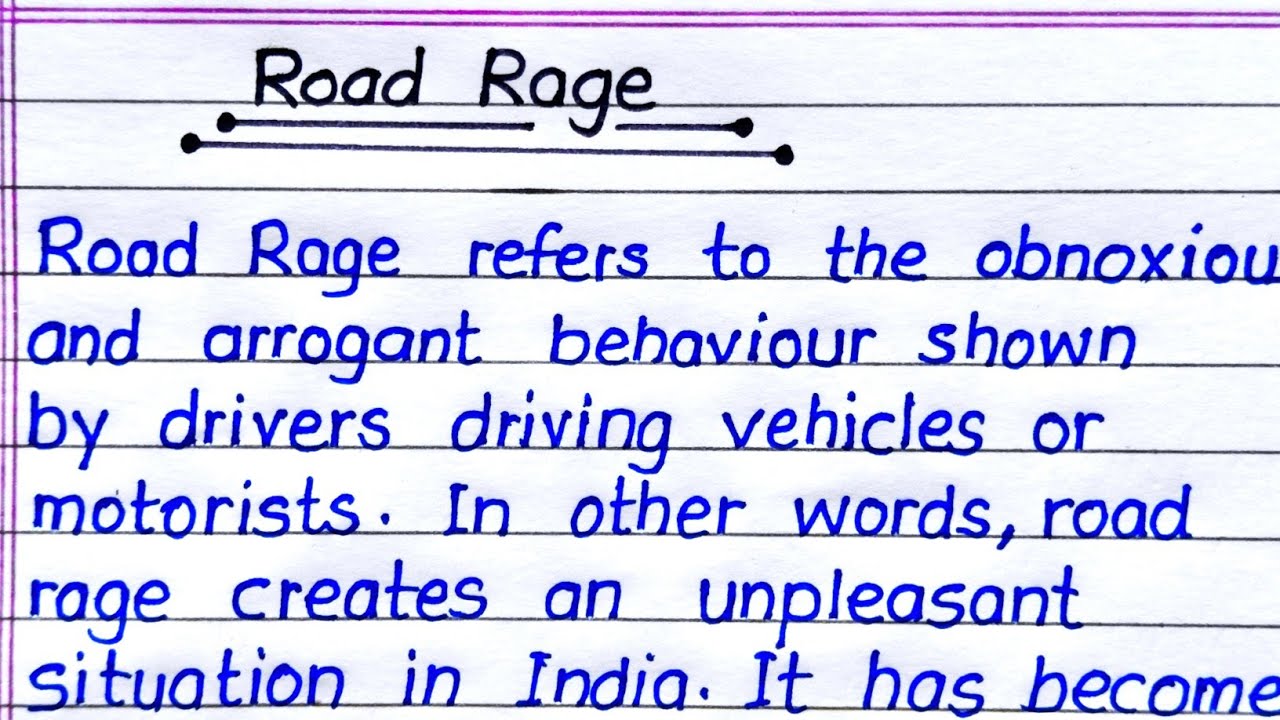 Road Rage
Road Rage refers to the obnoxiou
and arrogant behaviour shown
by drivers driving vehicles or
motorists. In other words, road
rage creates an unpleasant
situation in India. It has become